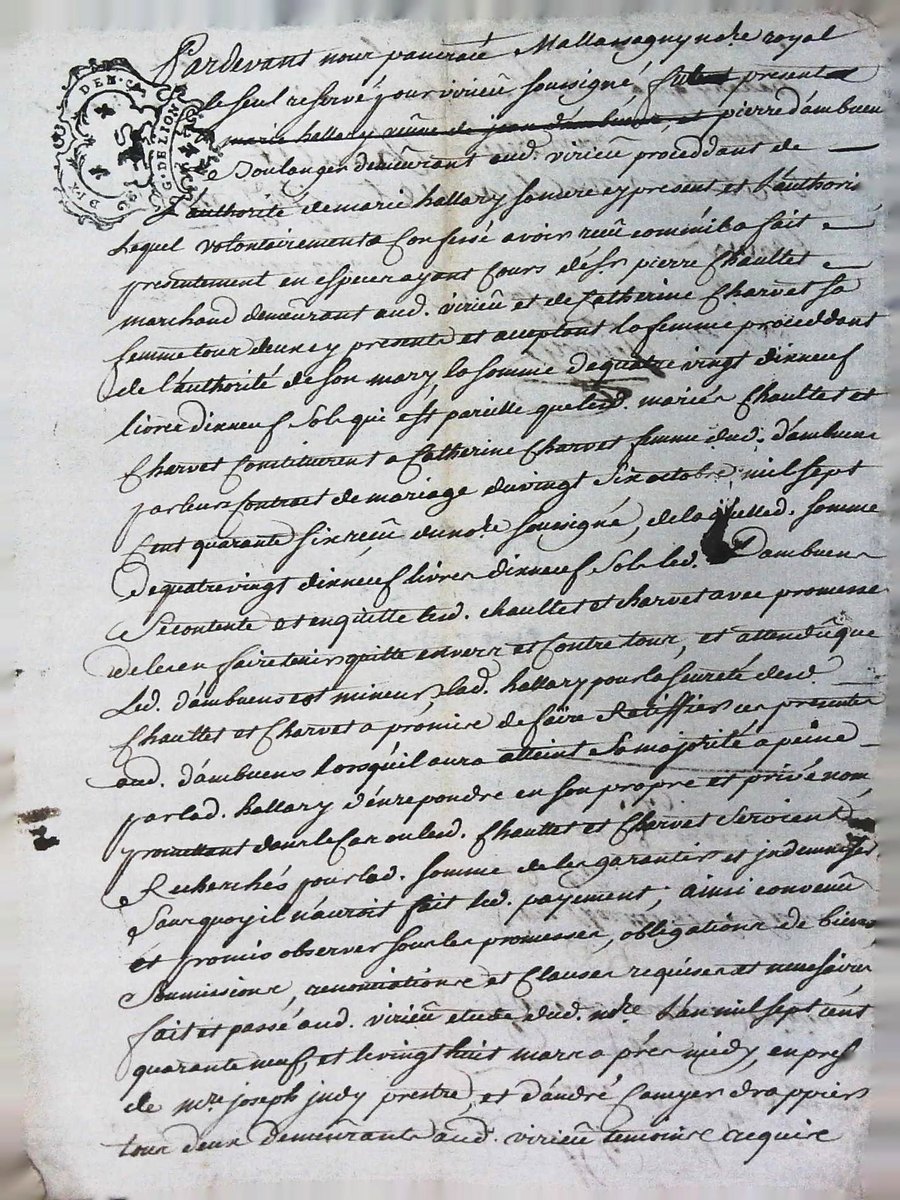 GEN. DE LION
Pardevant nous pancracé Mallassagny no.re royal
le seul reservé pour virieû soussigné, fut present
marie hallary veuve de jean d'ambuens, et pierre d'ambuens
Boulanger demeûrant aud. virieû proceddant de
l'authorité de marie hallary sa mere cy present et l'authoris
lequel volontairement a Confessé avoir reçû comme il a fait
presentement en especes ayant Cours de s.r pierre Chaullet
marchand demeûrant aud. virieû et de Catherine Charvet sa
femme tous deux cy presents et acceptant la femme proceddant
de l'authorité de son mary, la somme de quatre vingt dixneuf
livres dixneuf sols qui est pareille que lesd. mariés Chaullet et
Charvet Constituerent a Catherine Charvet femme dud. d'ambuens
par leur Contract de mariage du vingt six octobre mil sept
Cent quarante six reçû du no.re soussigné, de laquelle d. somme
de quatre vingt dixneuf livres dixneuf sols led. Dambuens
se contente et en quitte lesd. chaullet et charvet avec promesse
de les en faire tenir quitte envers et Contre tous, et attendû que
Led. d'ambuens est mineur, lad. hallary pour la seureté desd.
Chaullet et Charvet a promis de faire Ratiffier ces presentes
aud. d'ambuens lorsqu'il aura atteint sa majorité a peine
par lad. hallary d'en repondre en son propre et privé nom
promettant dans le Cas ou lesd. Chaullet et Charvet seroient
Recherchés pour lad. somme de les garantir et indemniser
sans quoy il n'auroit fait led. payement, ainsi convenû
et promis observer sous les promesses, obligations de biens
soumissions, renonciations et Clauses requises et necessaires
fait et passé aud. virieû etude dud. no.re L'an mil sept cent
quarante neuf, et le vingt huit mars a prés midy, en pres.
de m.re joseph judy prestre, et d'andré drappier
tous deux demeûrants aud. virieû temoins requis